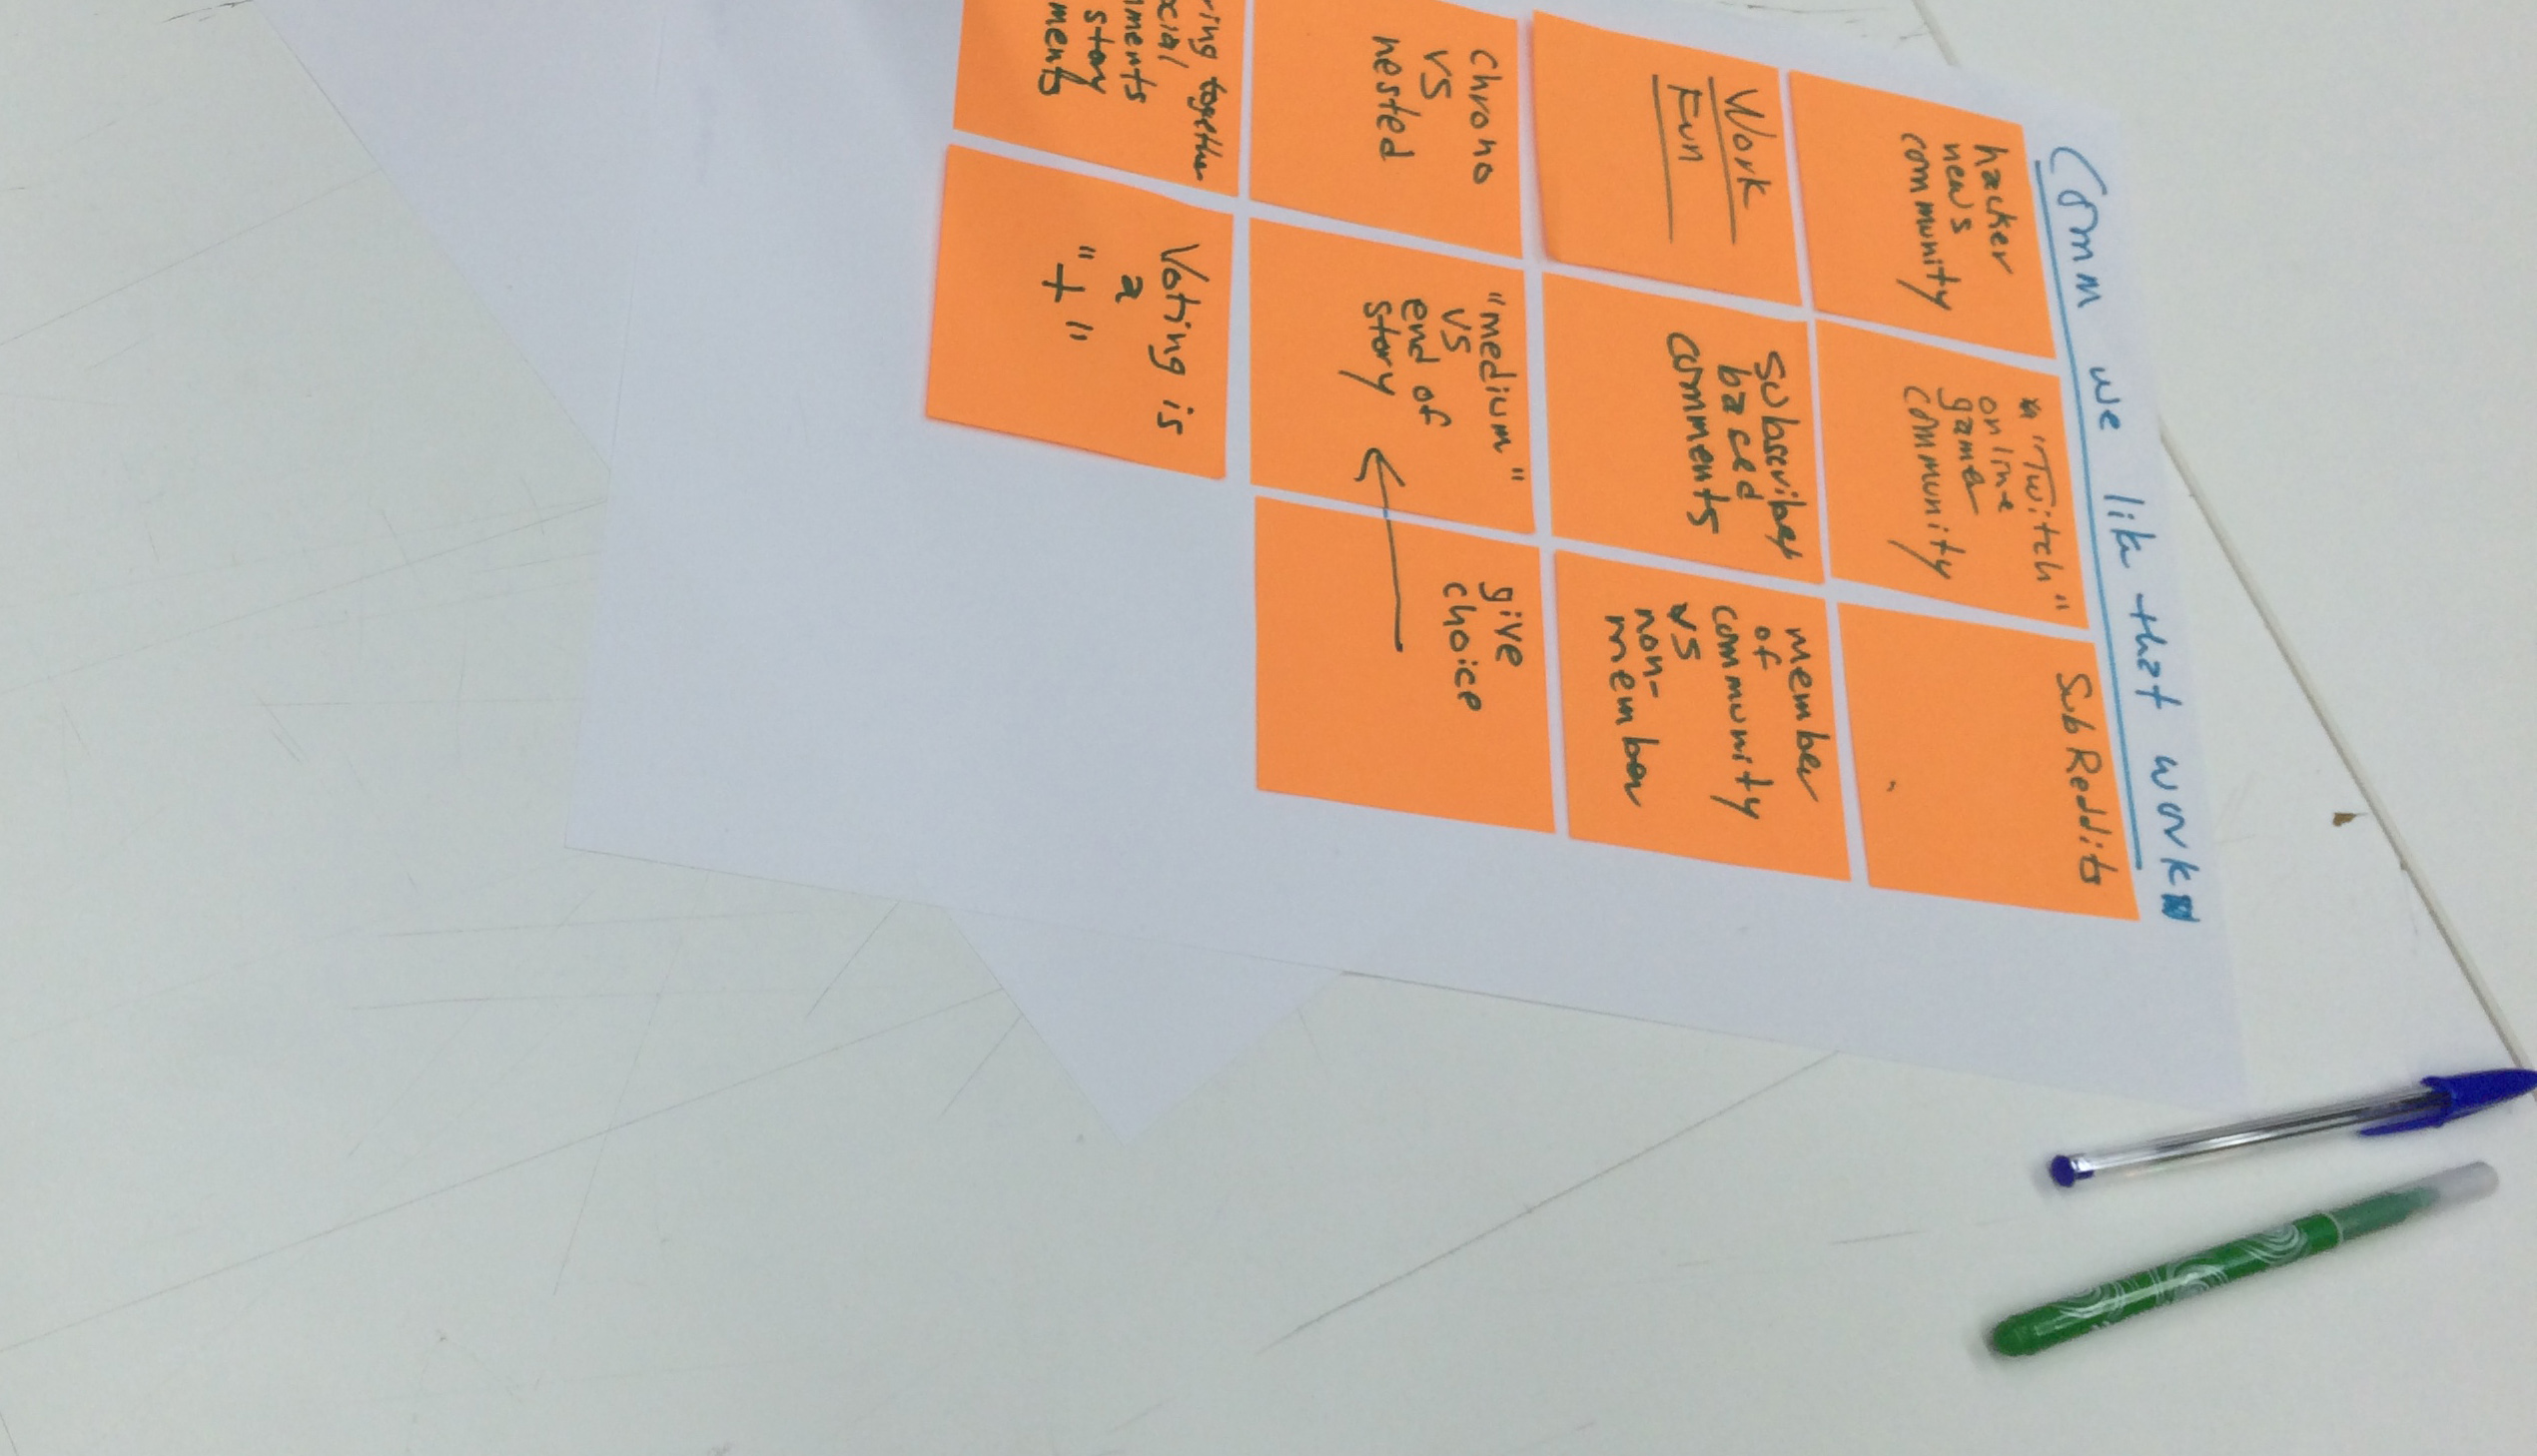 Comm we like that work
hacker
news
community
"Twitch"
online
gamer
community
SubReddits
Work
Fun
Subscriber
baced
comments
member
of
community
vs
non-
member
Chrono
vs
nested
"medium"
vs
end of
story
give
choice
together
story
Voting is
a
"+"